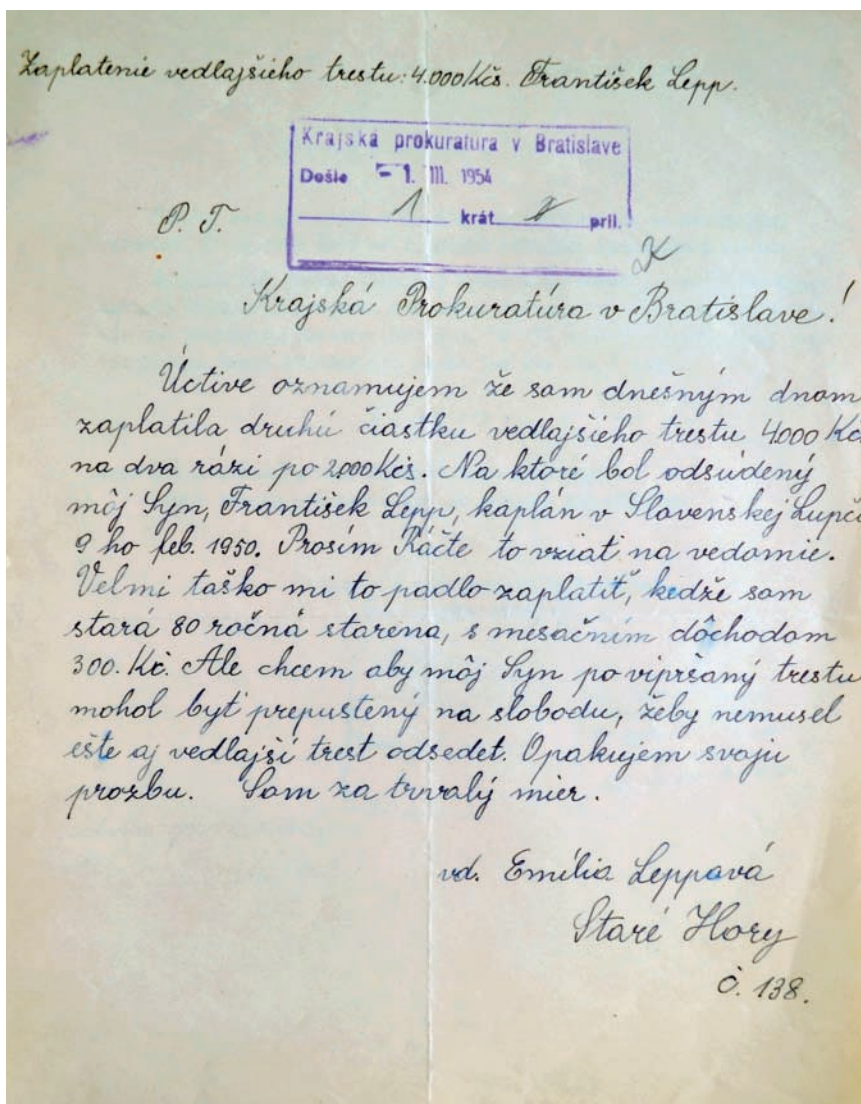 Zaplatenie vedlajšieho trestu: 4.000 Kčs. František Lepp.
Krajská prokuratúra v Bratislave
Došlo - 1. III. 1954
1 krát pril.
P. T.
Krajská Prokuratúra v Bratislave!
Úctive oznamujem že som dnešným dnom
zaplatila druhú čiastku vedlajšieho trestu 4000 Kč
na dva rázi po 2000 Kčs. Na ktoré bol odsúdený
môj Syn, František Lepp, kaplán v Slovenskej Lupči
9 ho feb. 1950. Prosím Ráčte to vziat na vedomie.
Velmi taško mi to padlo zaplatiť, kedže som
stará 80 ročná starena, s mesačním dôchodom
300. Kč. Ale chcem aby môj Syn po vipršaný trestu
mohol byť prepustený na slobodu, žeby nemusel
ešte aj vedlajší trest odsedet. Opakujem svoju
prozbu. Som za trvalý mier.
vd. Emília Leppová
Staré Hory
č. 138.